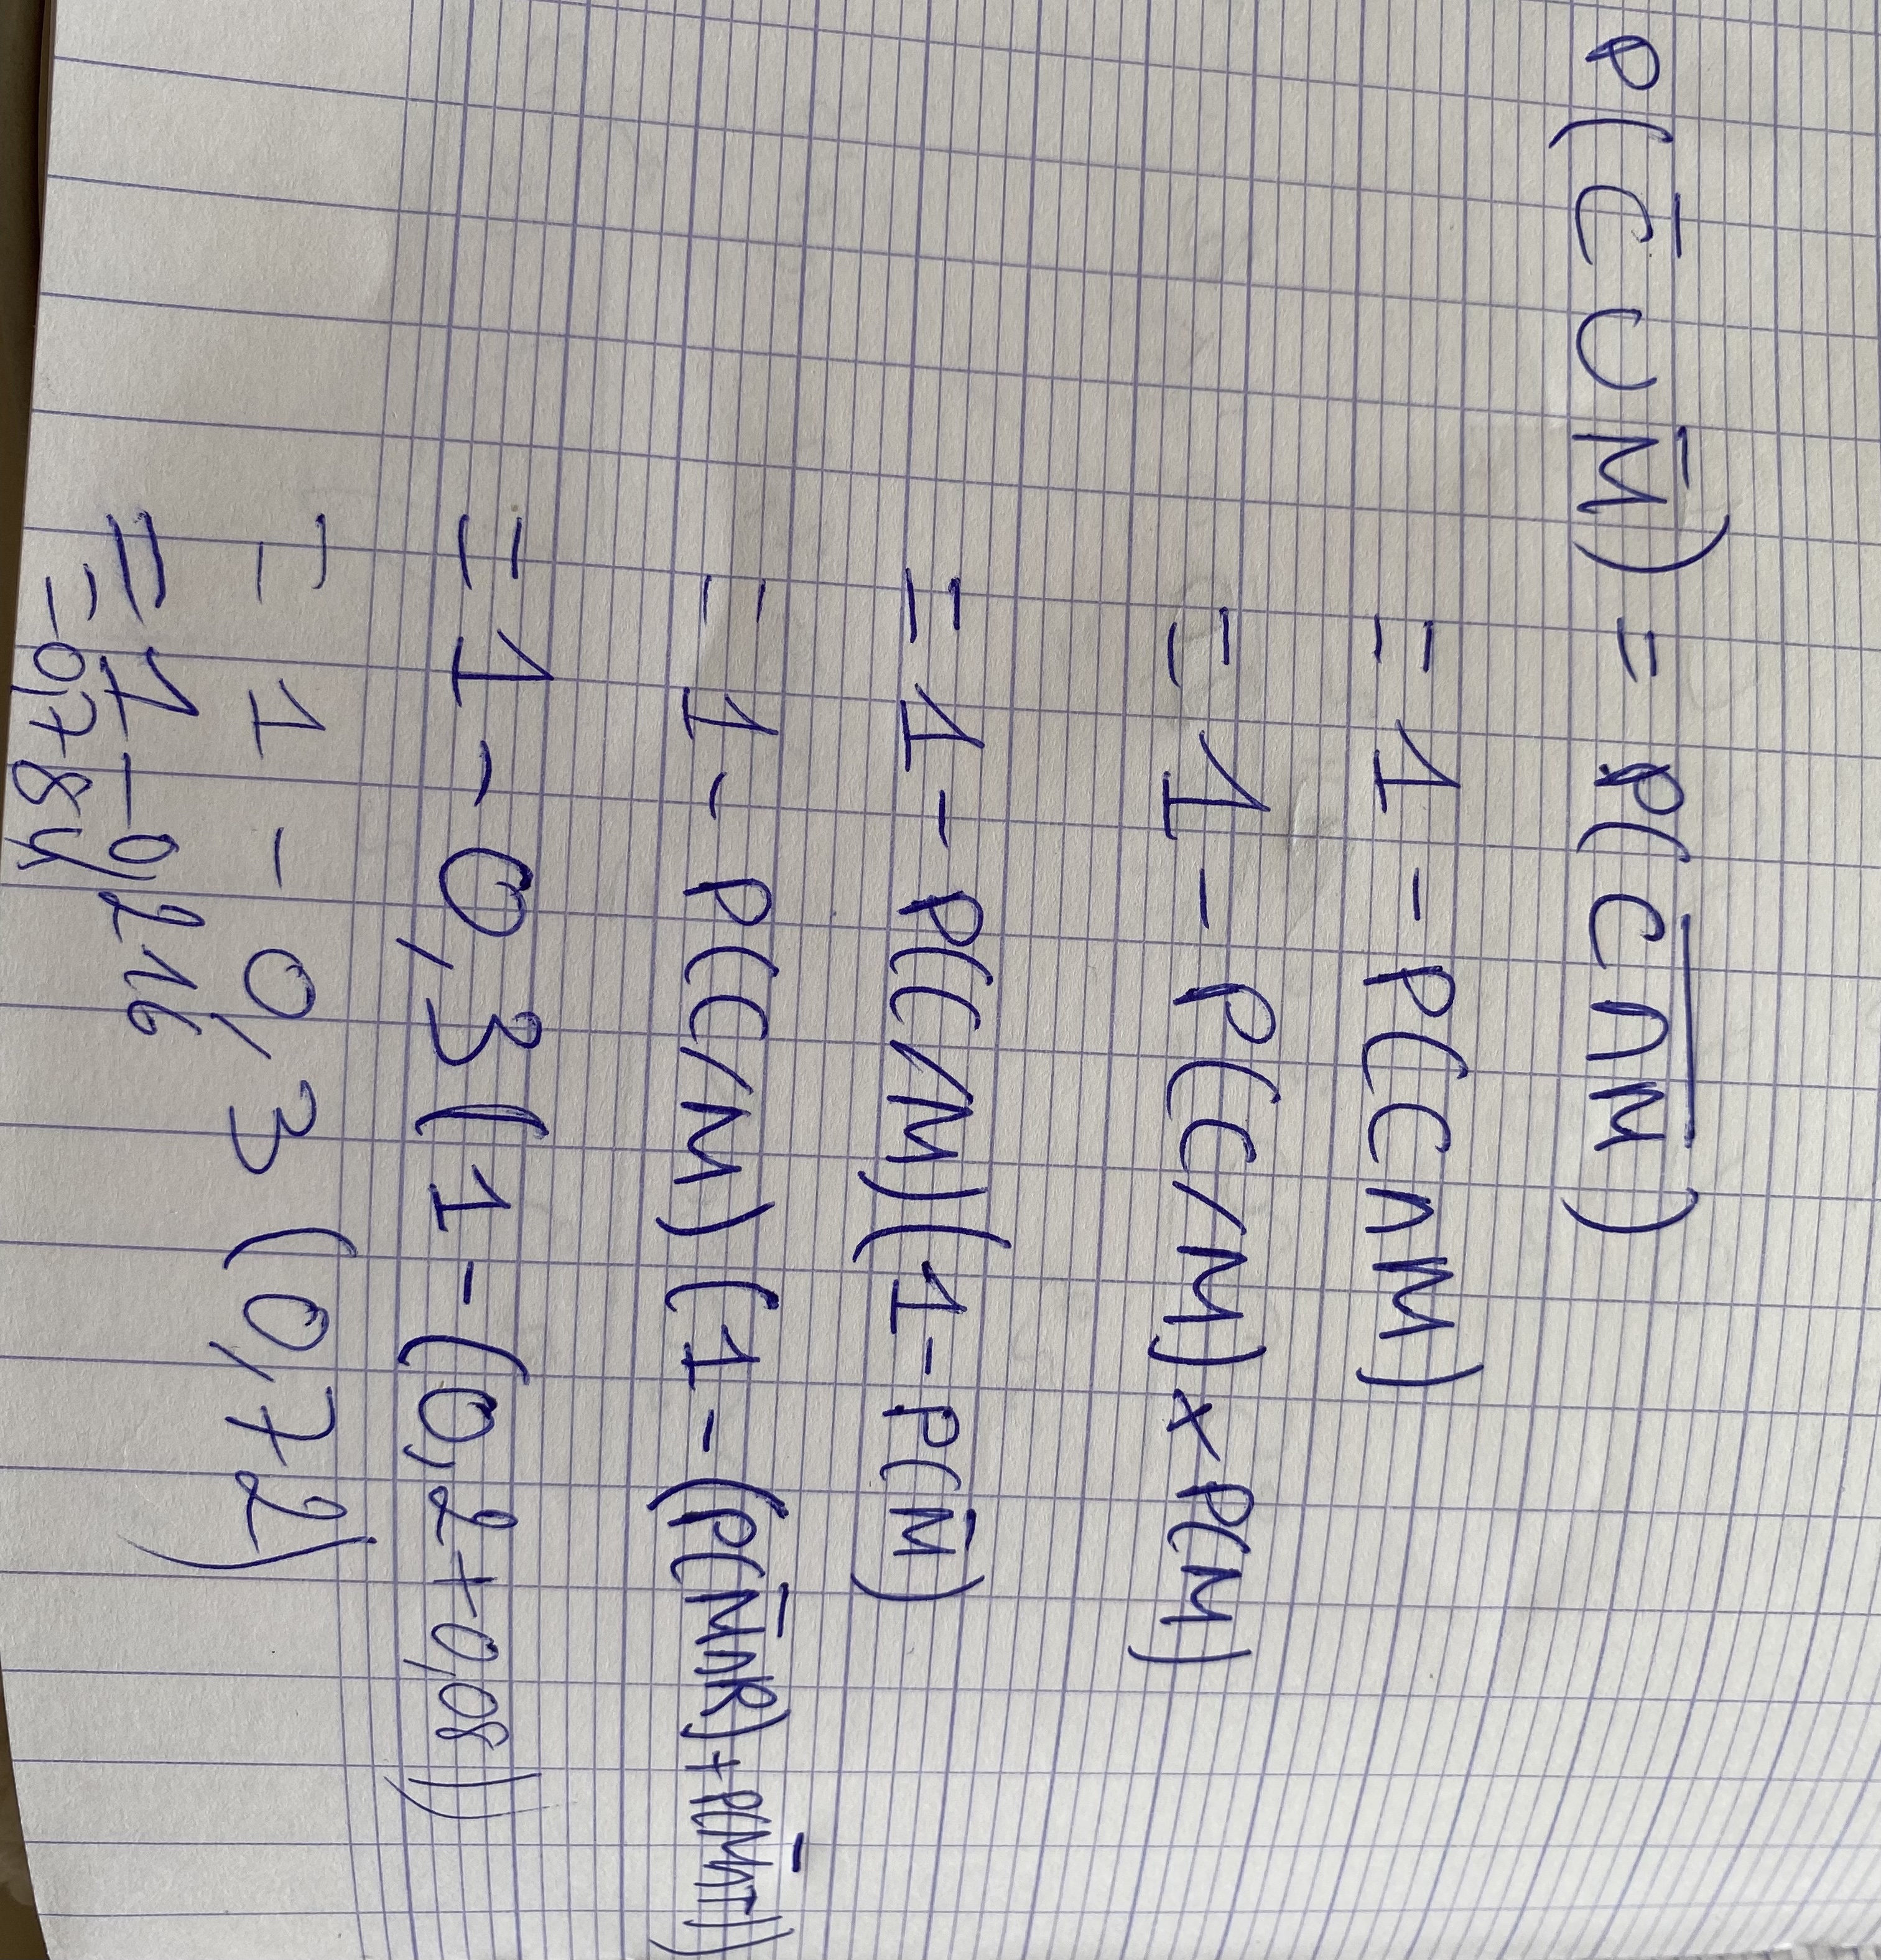 P(C̅ ∪ M̅) = P(C̅∩̅M̅)
= 1 - P(C∩M)
= 1 - P(C/M) × P(M)
= 1 - P(C/M)(1 - P(M̅)
= 1 - P(C/M) (1 - (P(M̅∩R) + P(M̅∩T))
= 1 - 0,3(1 - (0,2 + 0,08))
= 1 - 0,3 (0,72)
= 1 - 0,216
= 0,784